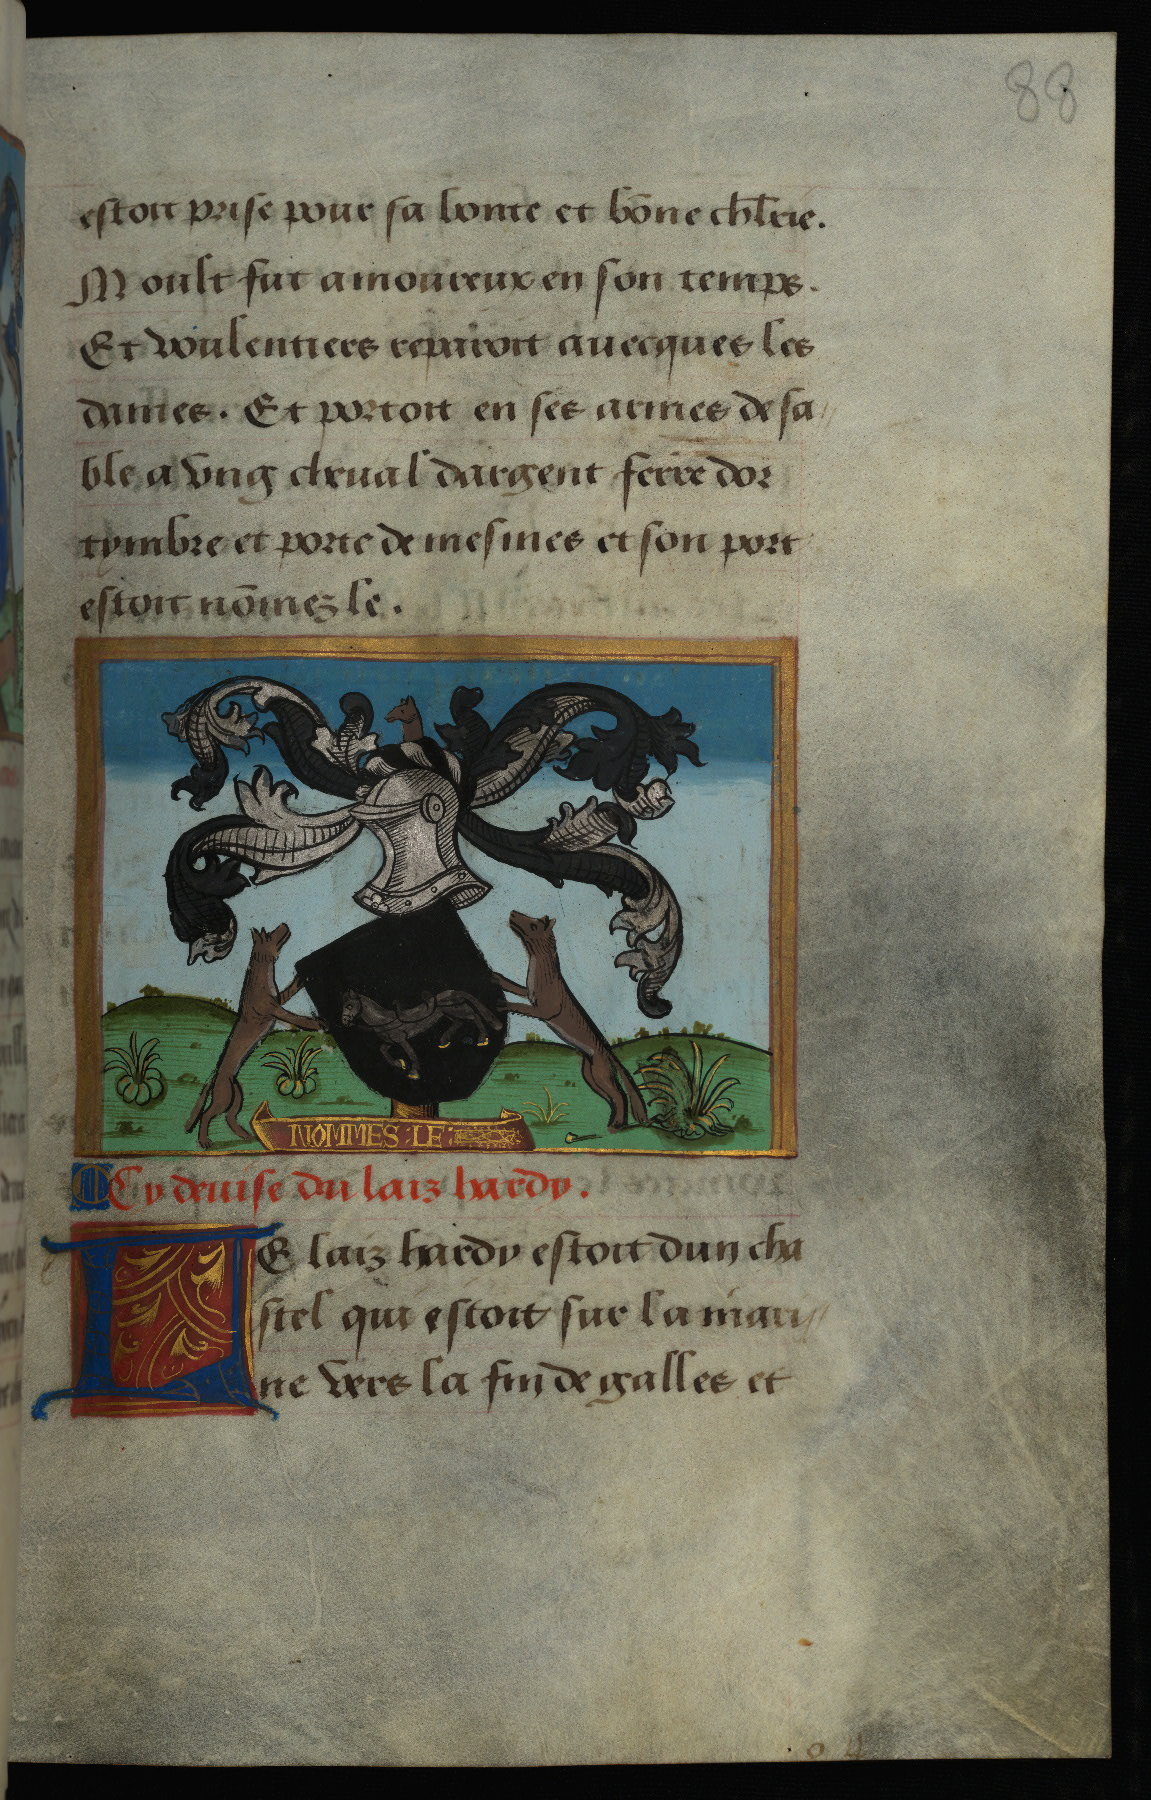 88
estoit prise pour sa bonte et bōne chl̄rie.
Moult fut amoureux en son temps.
Et voulentiers reparoit auecques les
dames. Et portoit en ses armes de sa//
ble a vng cheual dargent ferre dor
tymbre et porte de mesmes et son port
estoit nōmez le.
NOMMES : LE :
Cy deuise du laiz hardy.
LE laiz hardy estoit dun cha
stel qui estoit sur la mari//
ne vers la fin de galles et